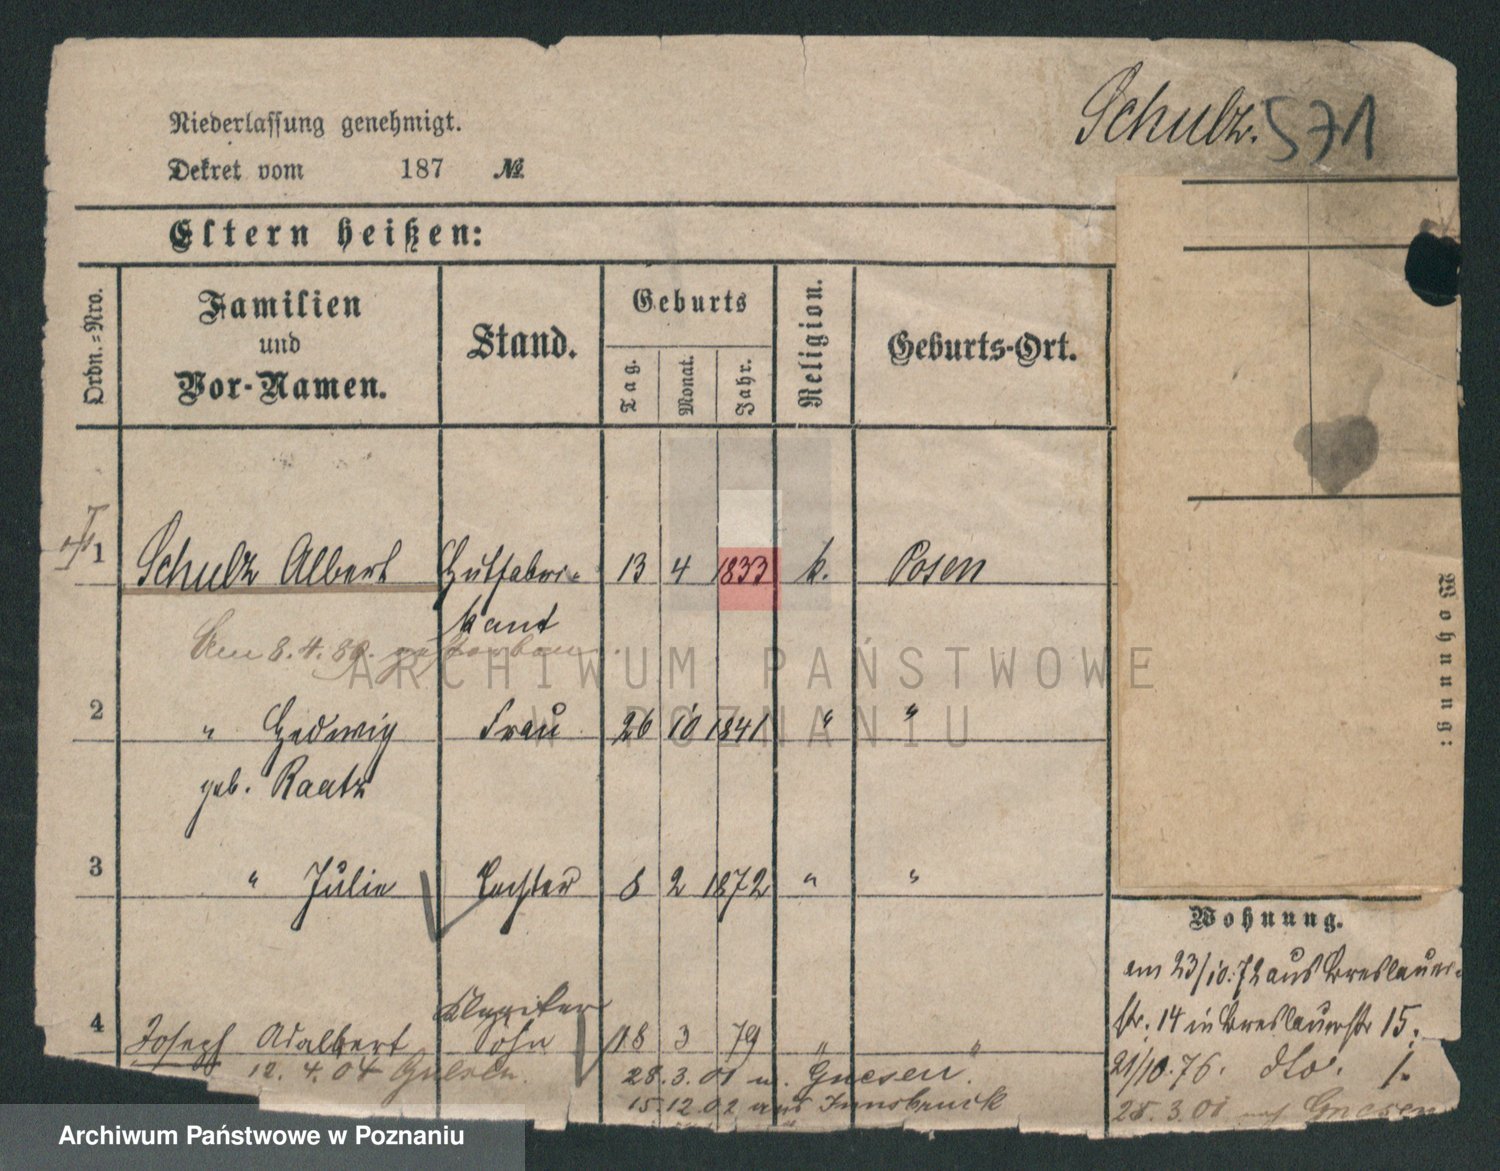 Schulz. 571
Niederlassung genehmigt.
Dekret vom 187 №
Eltern heißen:
Ordn.=Nro.
Familien
und
Vor-Namen.
Stand.
Geburts
Tag.
Monat.
Jahr.
Religion.
Geburts-Ort.
1 Schulz Albert Hutfabri- 13 4 1833 k. Posen
kant
Am 8.4.89. gestorben.
2 " Hedwig Frau 26 10 1841 " "
geb. Raatz
3 " Julie Tochter 8 2 1872 " "
4 Joseph Adalbert Sohn 18 3 79 " "
12. 4. 04 Gnesen.
28.3.01 n. Gnesen.
15.12.02 aus Innsbruck
Wohnung:
Wohnung.
am 23/10.72 aus Breslauer-
str. 14 in Breslauerstr 15.
21/10.76. dto. 1.
28.3.01 nach Gnesen
ARCHIWUM PAŃSTWOWE
W POZNANIU
Archiwum Państwowe w Poznaniu